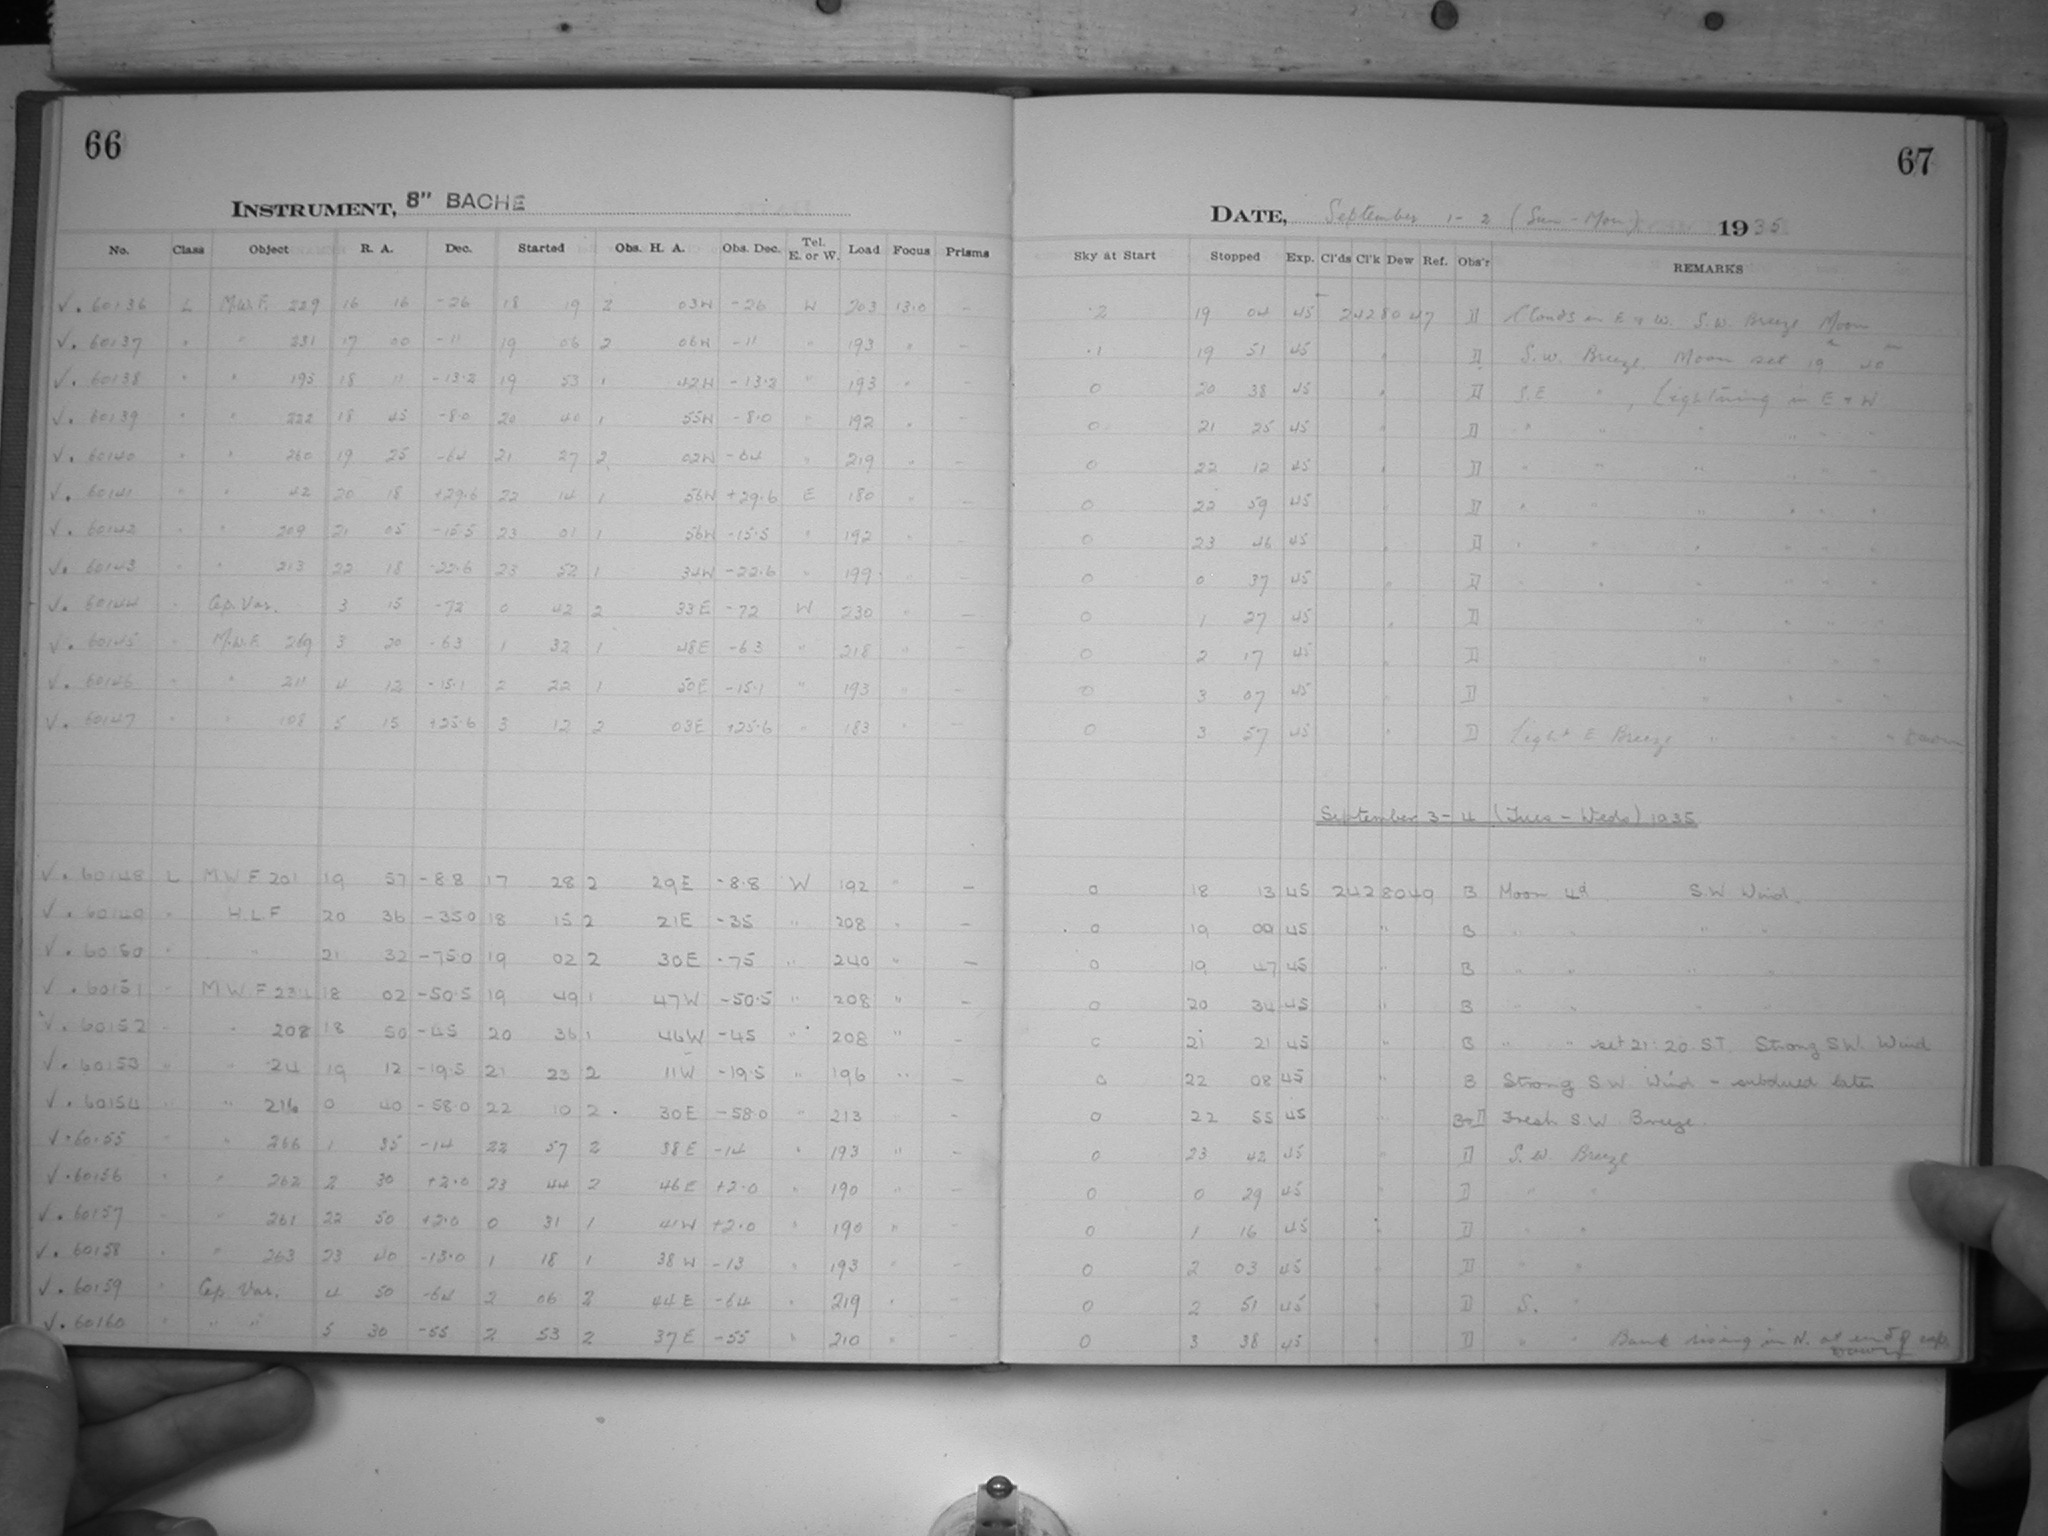 66
INSTRUMENT, 8" BACHE
No. Class Object R. A. Dec. Started Obs. H. A. Obs. Dec. Tel. E. or W. Load Focus Prisms
√. 60136 L M.W.F. 229 16 16 -26 18 19 2 03W -26 W 203 13.0 -
√. 60137 " " 231 17 00 -11 19 06 2 06W -11 " 193 " -
√. 60138 " " 195 18 11 -13.2 19 53 1 42W -13.2 " 193 " -
√. 60139 " " 222 18 45 -8.0 20 40 1 55W -8.0 " 192 " -
√. 60140 " " 260 19 25 -64 21 27 2 02W -64 " 219 " -
√. 60141 " " 42 20 18 +29.6 22 14 1 56W +29.6 E 180 " -
√. 60142 " " 209 21 05 -15.5 23 01 1 56W -15.5 " 192 " -
√. 60143 " " 213 22 18 -22.6 23 52 1 34W -22.6 " 199 " -
√. 60144 " Cep. Var. 3 15 -72 0 42 2 33E -72 W 230 " -
√. 60145 " M.W.F. 269 3 20 -63 1 32 1 48E -63 " 218 " -
√. 60146 " " 211 4 12 -15.1 2 22 1 50E -15.1 " 193 " -
√. 60147 " " 108 5 15 +25.6 3 12 2 03E +25.6 " 183 " -
√. 60148 L M W F 201 19 57 -8.8 17 28 2 29E -8.8 W 192 " -
√. 60149 " H.L.F 20 36 -35.0 18 15 2 21E -35 " 208 " -
√. 60150 " " 21 32 -75.0 19 02 2 30E -75 " 240 " -
√. 60151 " M W F 18 02 -50.5 19 49 1 47W -50.5 " 208 " -
√. 60152 " " 208 18 50 -45 20 36 1 46W -45 " 208 " -
√. 60153 " " 19 12 -19.5 21 23 2 11W -19.5 " 196 " -
√. 60154 " " 216 0 40 -58.0 22 10 2 30E -58.0 " 213 -
√. 60155 " " 266 1 35 -14 22 57 2 38E -14 " 193 " -
√. 60156 " " 262 2 30 +2.0 23 44 2 46E +2.0 " 190 " -
√. 60157 " " 261 22 50 +2.0 0 31 1 41W +2.0 " 190 " -
√. 60158 " " 263 23 40 -13.0 1 18 1 38W -13 " 193 " -
√. 60159 " Cep. Var. 4 50 -64 2 06 2 44E -64 " 219 " -
√. 60160 " " " 5 30 -55 2 53 2 37E -55 " 210 " -
67
DATE, September 1-2 (Sun-Mon) 1935
Sky at Start Stopped Exp. Cl'ds Cl'k Dew Ref. Obs'r REMARKS
.2 19 04 45 2428047 D Clouds in E & W. S.W. Breeze Moon
.1 19 51 45 " D S.W. Breeze. Moon set 19h 40m
0 20 38 45 " D S.E " , Lightning in E & W
0 21 25 45 " D " " " " " "
0 22 12 45 " D " " " " " "
0 22 59 45 " D " " " " " "
0 23 46 45 " D " " " " " "
0 0 37 45 " D " " " " " "
0 1 27 45 " D " " " "
0 2 17 45 " D " " " "
0 3 07 45 " D " " " "
0 3 57 45 " D Light E Breeze " " " " Dawn
September 3-4 (Tues-Weds) 1935
0 18 13 45 2428049 B Moon 4d S.W. Wind.
0 19 00 45 " B " " " "
0 19 47 45 " B " " " "
0 20 34 45 B " " " "
0 21 21 45 " B " " set 21.20 S.T. Strong SW. Wind
0 22 08 45 " B Strong S W Wind - subdued later
0 22 55 45 " B+D Fresh S.W. Breeze.
0 23 42 45 " D S.W. Breeze
0 0 29 45 " D " "
0 1 16 45 " D " "
0 2 03 45 " D " "
0 2 51 45 " D S. "
0 3 38 45 " D " " Bank rising in N. at end of exp. Dawn